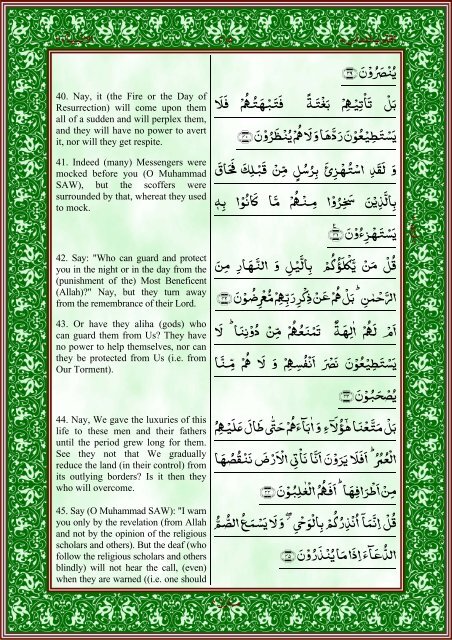 يُنْصَرُوْنَ ﴿۳۹﴾
40. Nay, it (the Fire or the Day of
Resurrection) will come upon them
all of a sudden and will perplex them,
and they will have no power to avert
it, nor will they get respite.
بَلْ تَاْتِيْهِمْ بَغْتَةً فَتَبْهَتُهُمْ فَلَا
يَسْتَطِيْعُوْنَ رَدَّهَا وَلَا هُمْ يُنْظَرُوْنَ ﴿۴۰﴾
41. Indeed (many) Messengers were
mocked before you (O Muhammad
SAW), but the scoffers were
surrounded by that, whereat they used
to mock.
وَ لَقَدِ اسْتُهْزِئَ بِرُسُلٍ مِّنْ قَبْلِكَ فَحَاقَ
بِالَّذِيْنَ سَخِرُوْا مِنْهُمْ مَّا كَانُوْا بِهٖ
يَسْتَهْزِءُوْنَ ﴿۴۱﴾
42. Say: "Who can guard and protect
you in the night or in the day from the
(punishment of the) Most Beneficent
(Allah)?" Nay, but they turn away
from the remembrance of their Lord.
قُلْ مَنْ يَّكْلَؤُكُمْ بِالَّيْلِ وَ النَّهَارِ مِنَ
الرَّحْمٰنِ ؕ بَلْ هُمْ عَنْ ذِكْرِ رَبِّهِمْ مُّعْرِضُوْنَ ﴿۴۲﴾
43. Or have they aliha (gods) who
can guard them from Us? They have
no power to help themselves, nor can
they be protected from Us (i.e. from
Our Torment).
اَمْ لَهُمْ اٰلِهَةٌ تَمْنَعُهُمْ مِّنْ دُوْنِنَا ؕ لَا
يَسْتَطِيْعُوْنَ نَصْرَ اَنْفُسِهِمْ وَ لَا هُمْ مِّنَّا
يُصْحَبُوْنَ ﴿۴۳﴾
44. Nay, We gave the luxuries of this
life to these men and their fathers
until the period grew long for them.
See they not that We gradually
reduce the land (in their control) from
its outlying borders? Is it then they
who will overcome.
بَلْ مَتَّعْنَا هٰۤؤُلَآءِ وَ اٰبَآءَهُمْ حَتّٰى طَالَ عَلَيْهِمُ
الْعُمُرُ ؕ اَفَلَا يَرَوْنَ اَنَّا نَاْتِى الْاَرْضَ نَنْقُصُهَا
مِنْ اَطْرَافِهَا ؕ اَفَهُمُ الْغٰلِبُوْنَ ﴿۴۴﴾
45. Say (O Muhammad SAW): "I warn
you only by the revelation (from Allah
and not by the opinion of the religious
scholars and others). But the deaf (who
follow the religious scholars and others
blindly) will not hear the call, (even)
when they are warned ((i.e. one should
قُلْ اِنَّمَاۤ اُنْذِرُكُمْ بِالْوَحْىِ ۖ وَ لَا يَسْمَعُ الصُّمُّ
الدُّعَآءَ اِذَا مَا يُنْذَرُوْنَ ﴿۴۵﴾